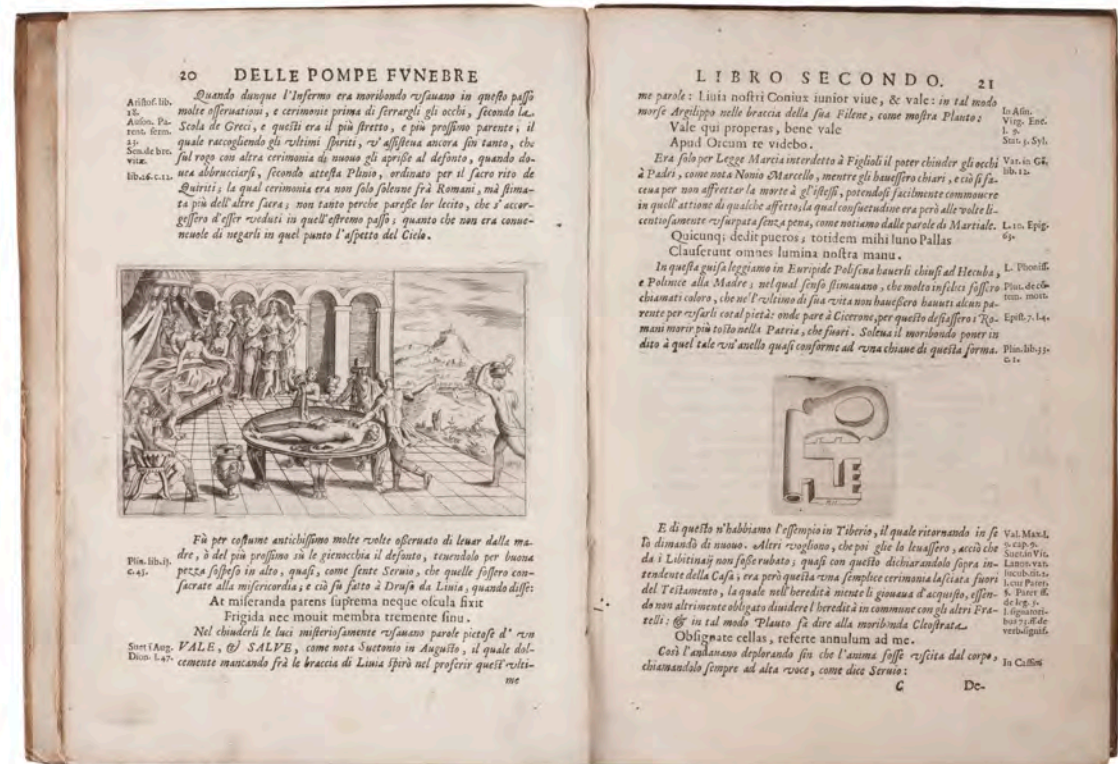 20 DELLE POMPE FVNEBRE
Quando dunque l'Infermo era moribondo vsauano in questo passo
molte osseruationi, e cerimonie prima di serrargli gli occhi, secondo la
Scola de Greci, e questi era il più stretto, e più prossimo parente, il
quale raccogliendo gli vltimi spiriti, v'assisteua ancora sin tanto, che
sul rogo con altra cerimonia di nuouo gli aprisse al defonto, quando do-
uea abbrucciarsi, secondo attesta Plinio, ordinato per il sacro rito de
Quiriti; la qual cerimonia era non solo solenne frà Romani, mà stima-
ta più dell'altre sacra; non tanto perche paresse lor lecito, che s'accor-
gessero d'esser veduti in quell'estremo passo; quanto che non era conue-
neuole di negarli in quel punto l'aspetto del Cielo.
Aristof. lib.
18.
Auson. Pa-
rent. serm.
23.
Sen. de bre.
vitæ.
lib. 26. c. 11.
Fù per costume antichissimo molte volte osseruato di leuar dalla ma-
dre, ò del più prossimo sù le gienocchia il defonto, tenendolo per buona
pezza sospeso in alto, quasi, come sente Seruio, che quelle fossero con-
sacrate alla misericordia; e ciò fù fatto à Druso da Liuia, quando disse:
At miseranda parens suprema neque oscula fixit
Frigida nec mouit membra tremente sinu.
Nel chiuderli le luci misteriosamente vsauano parole pietose d'vn
VALE, & SALVE, come nota Suetonio in Augusto, il quale dol-
cemente mancando frà le braccia di Liuia spirò nel proferir quest'vlti-
me
Plin. lib. 11.
c. 45.
Suet. i Aug.
Dion. l. 47.
LIBRO SECONDO. 21
me parole: Liuia nostri Coniux iunior viue, & vale: in tal modo
morse Argilippo nelle braccia della sua Filene, come mostra Planto:
Vale qui properas, bene vale
Apud Orcum te videbo.
Era solo per Legge Marcia interdetto à Figlioli il poter chiuder gli occhi
à Padri, come nota Nonio Marcello, mentre gli hauessero chiari, e ciò si fa-
ceua per non affrettar la morte à gl'istessi, potendosi facilmente commouere
in quell'attione di qualche affetto; la qual consuetudine era però alle volte li-
centiosamente vsurpata senza pena, come notiamo dalle parole di Martiale.
Quicunq; dedit pueros, totidem mihi Iuno Pallas
Clauserunt omnes lumina nostra manu.
In questa guisa leggiamo in Euripide Polissena hauerli chiusi ad Hecuba,
e Polinice alla Madre; nel qual senso stimauano, che molto infelici fossero
chiamati coloro, che ne l'vltimo di sua vita non hauessero hauuti alcun pa-
rente per vsarli cotal pietà: onde pare à Cicerone, per questo desiassero i Ro-
mani morir più tosto nella Patria, che fuori. Soleua il moribondo poner in
dito à quel tale vn'anello quasi conforme ad vna chiaue di questa forma.
In Asin.
Virg. Ene.
l. 9.
Stat. 5. Syl.
Var. in Ge.
lib. 12.
L. 10. Epig.
63.
L. Phoniss.
Plut. de cõ-
tem. mort.
Epist. 7. l. 4.
Plin. lib. 33.
c. 1.
E di questo n'habbiamo l'essempio in Tiberio, il quale ritornando in se
lo dimandò di nuouo. Altri vogliono, che poi glie lo leuassero, acciò che
da i Libitinaij non fosse rubato; quasi con questo dichiarandolo sopra in-
tendente della Casa; era però questa vna semplice cerimonia lasciata fuori
del Testamento, la quale nell'heredità niente li giouaua d'acquisto, essen-
do non altrimente obligato diuidere l'heredità in commune con gli altri Fra-
telli: & in tal modo Plauto fà dire alla moribonda Cleostrata.
Obsignate cellas, referte annulum ad me.
Così l'andauano deplorando sin che l'anima fosse vscita dal corpo,
chiamandolo sempre ad alta voce, come dice Seruio:
C De-
Val. Max. l.
cap. 9.
Suet. in Vit.
In Cassin